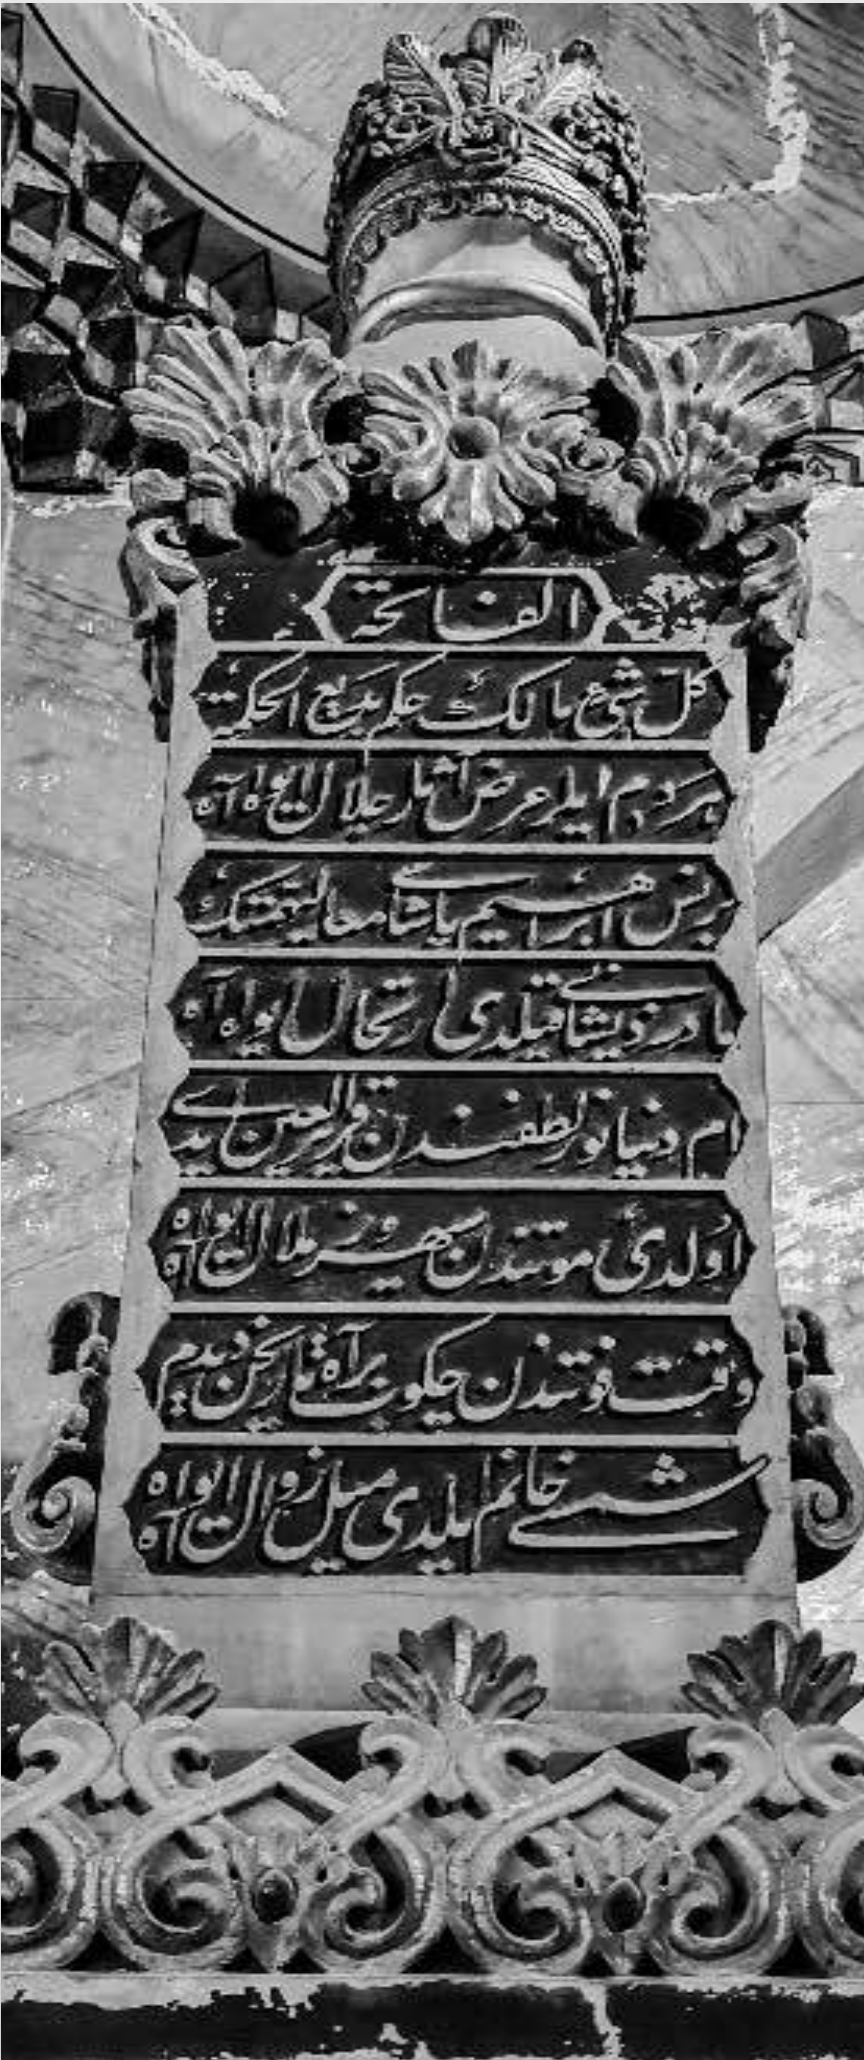 الفاتحة
كل شئ مالك حكم بديع الحكمة
هردم ايلر عرض آثار جلال ايواه آه
برنس ابراهيم پاشای معاليهمتك
مادر ذيشانی قيلدی ارتحال ايواه آه
ام دنيا نور لطفندن قرير العين ايدی
اولدی موتندن سپهره ملال ايواه آه
وقت فوتندن چكوب بر آه تاريخن ديدم
شمسی خانم ايلدی ميل زوال ايواه آه